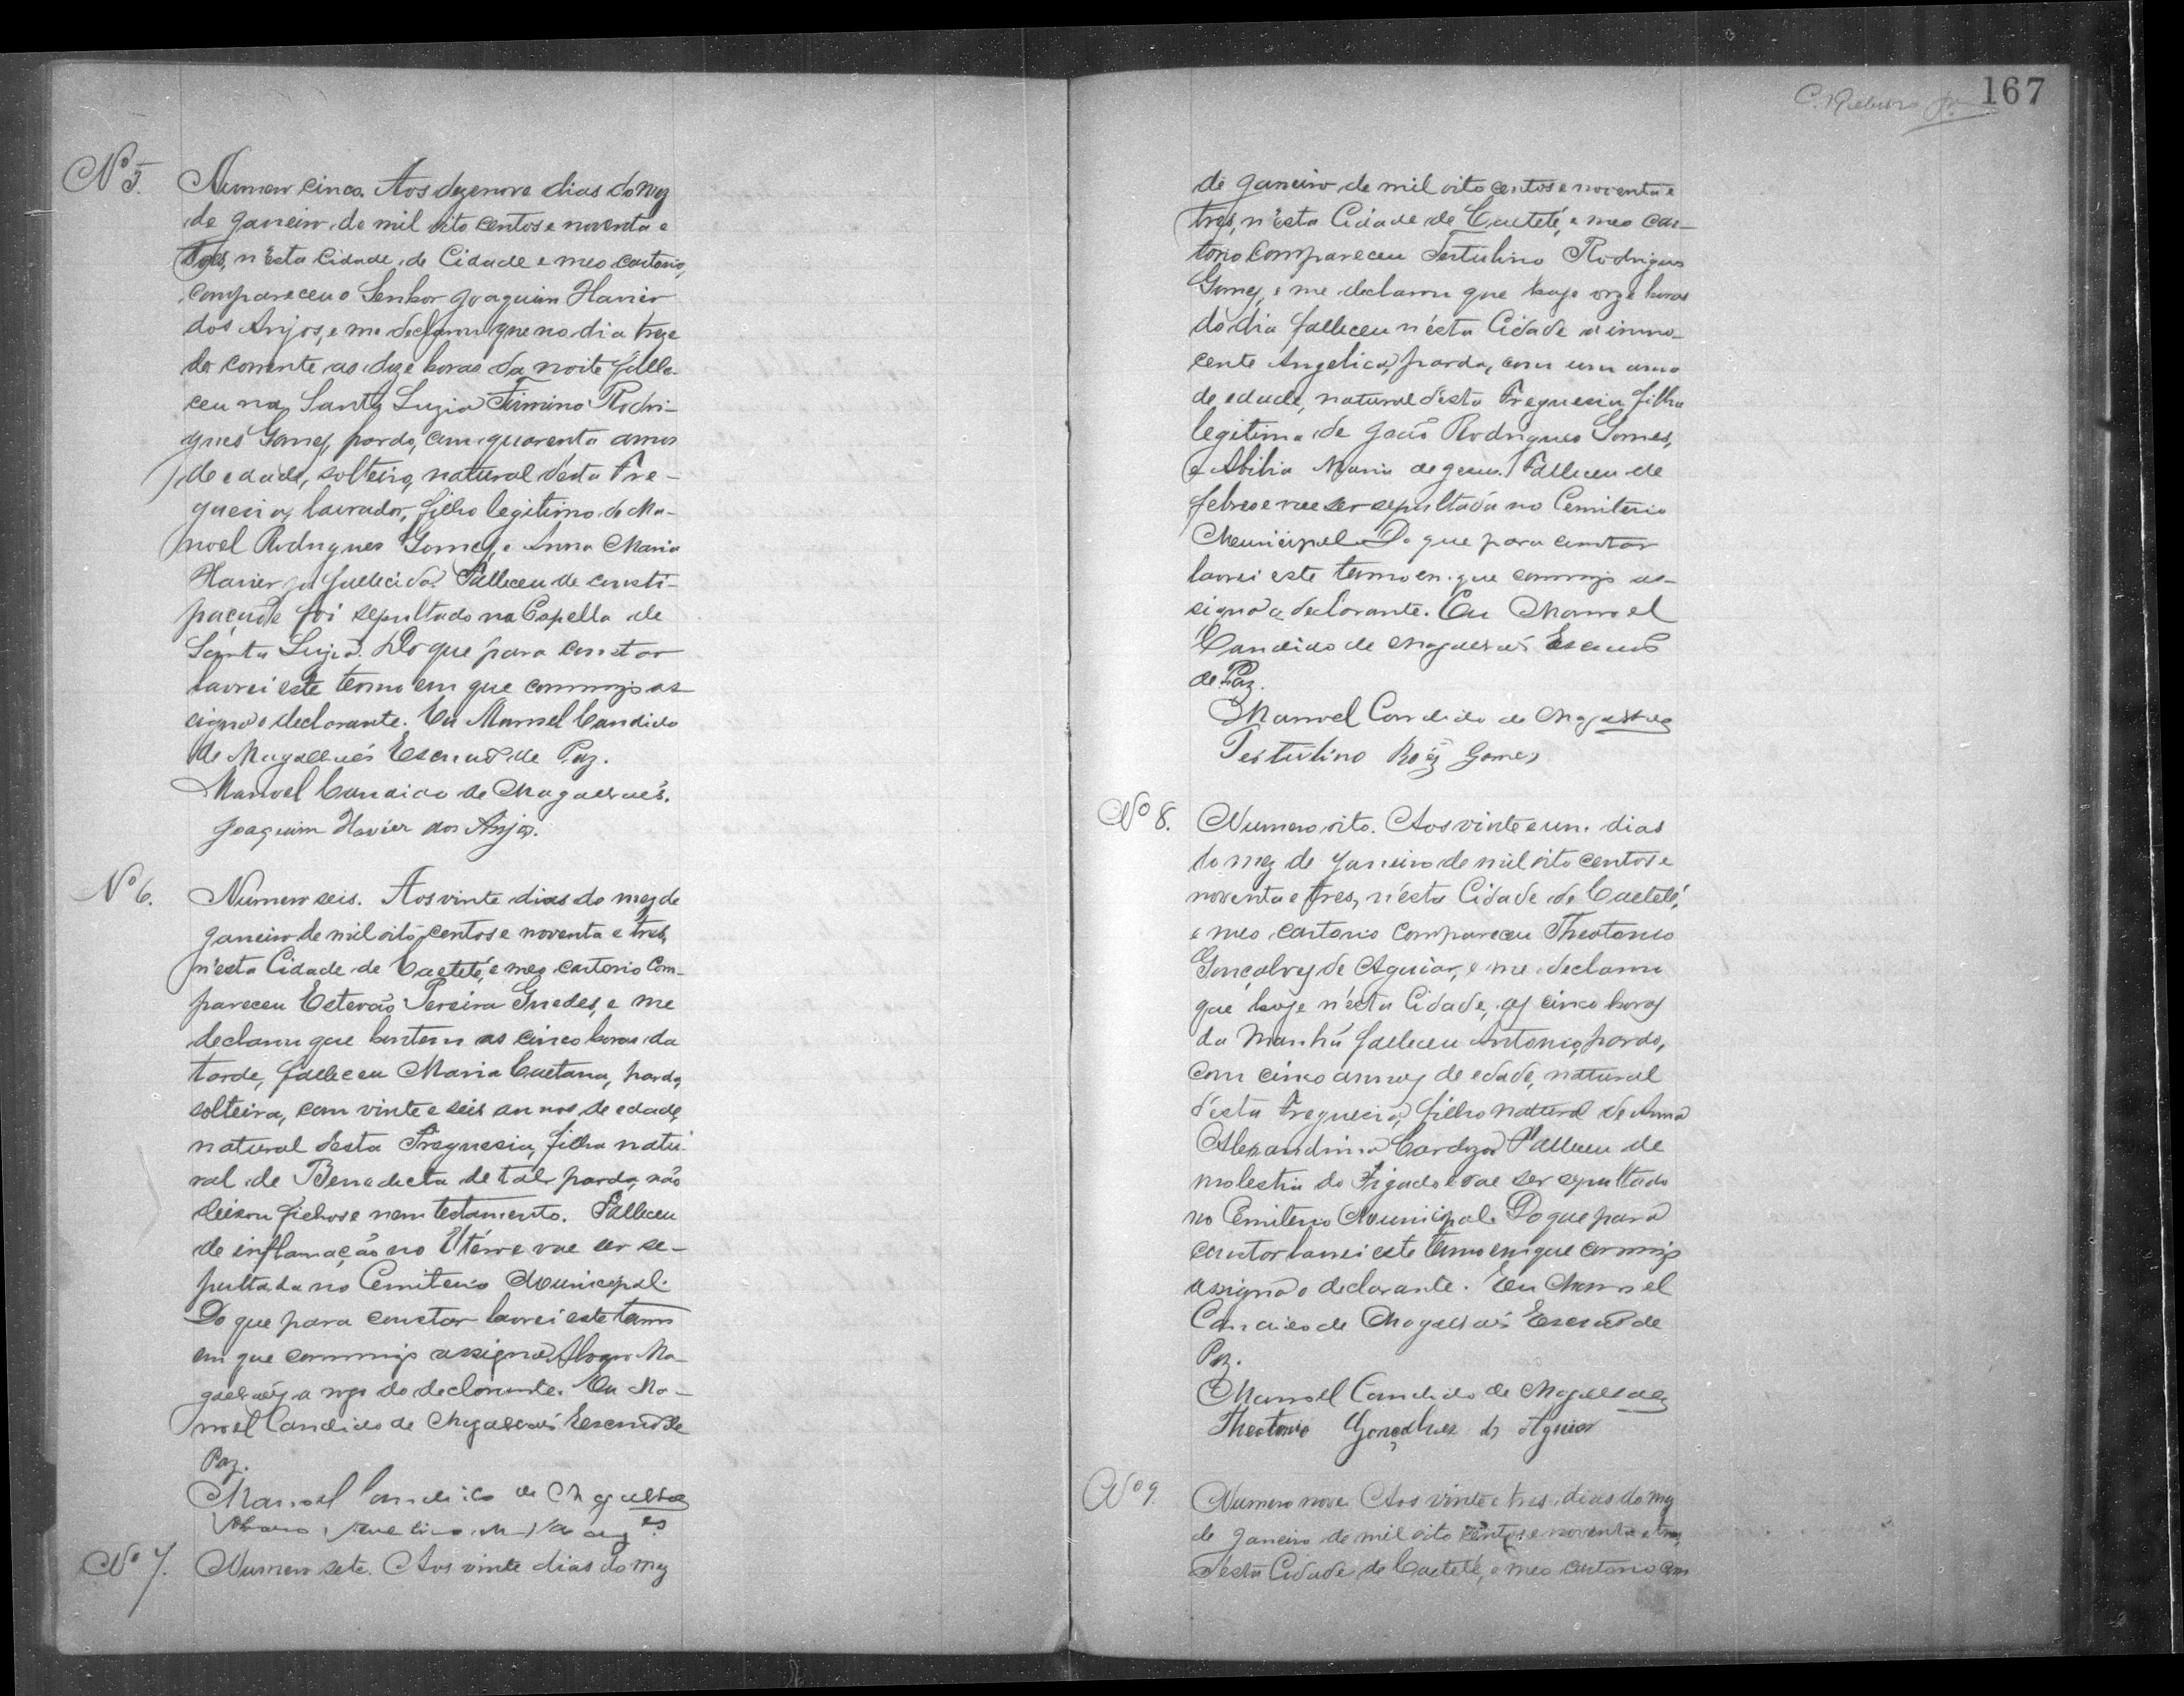 Nº 5.
Numero cinco. Aos dezenove dias do mez
de Janeiro de mil oito centos e noventa e
tres, n'esta Cidade de Cidade e meo cartorio,
compareceu o Senhor Joaquim Xavier
dos Anjos, e me declarou que no dia treze
do corrente as doze horas da noite falle-
ceu na Santa Luzia Firmino Rodri-
gues Gomes, pardo, com quarenta annos
de edade, solteiro, natural desta Fre-
guesia, lavrador, filho legitimo de Ma-
noel Rodrigues Gomes, e Anna Maria
Xavier ja fallecida. Falleceu de consti-
pação foi sepultado na Capella de
Santa Luzia. Do que para constar
lavrei este termo em que commigo as
signa o declarante. Eu Manoel Candido
de Magalhães Escrivão de Paz.
Manoel Candido de Magalhães.
Joaquim Xavier dos Anjos.
Nº 6.
Numero seis. Aos vinte dias do mez de
Janeiro de mil oito centos e noventa e tres,
n'esta Cidade de Caeteté, e meo cartorio com-
pareceu Estevão Pereira Guedes, e me
declarou que hontem as cinco horas da
tarde, falleceu Maria Caetana, parda,
solteira, com vinte e seis annos de edade,
natural desta Freguesia, filha natu-
ral de Benedicta de tal, parda, não
deixou filhos e nem testamento. Falleceu
de inflamação no Utero e vae ser se-
pultada no Cemiterio Municipal.
Do que para constar lavrei este termo
em que commigo assigna Alvaro Ma-
galhães a rogo do declarante. Eu Ma-
noel Candido de Magalhães Escrivão de
Paz.
Manoel Candido de Magalhães
Nº 7.
Numero sete. Aos vinte dias do mez
167
de Janeiro de mil oito centos e noventa e
tres, n'esta Cidade de Caeteté, e meo car-
torio compareceu Tertulino Rodrigues
Gomes, e me declarou que hoje onze horas
do dia falleceu n'esta Cidade a inno-
cente Angelica, parda, com um anno
de edade, natural d'esta Freguesia filha
legitima de João Rodrigues Gomes,
e Abilia Maria de Jesus. Falleceu de
febres e vae ser sepultada no Cemiterio
Municipal. Do que para constar
lavrei este termo em que commigo as-
signa o declarante. Eu Manoel
Candido de Magalhães Escrivão
de Paz.
Manoel Candido de Magalhães
Tertulino Roiz Gomes
Nº 8.
Numero oito. Aos vinte e um dias
do mez de Janeiro de mil oito centos e
noventa e tres, n'esta Cidade de Caeteté,
e meo cartorio compareceu Theotonio
Gonçalves de Aguiar, e me declarou
que hoje n'esta Cidade, as cinco horas
da manhã falleceu Antonio, pardo,
com cinco annos de edade, natural
d'esta Freguesia, filho natural de Anna
Alexandrina Cardozo. Falleceu de
molestia do Figado e vae ser sepultado
no Cemiterio Municipal. Do que para
constar lavrei este termo em que commigo
assigna o declarante. Eu Manoel
Candido de Magalhães Escrivão de
Paz.
Manoel Candido de Magalhães
Theotonio Gonçalves de Aguiar
Nº 9.
Numero nove. Aos vinte e tres dias do mez
de Janeiro de mil oito centos e noventa e tres,
n'esta Cidade de Caeteté, e meo cartorio com